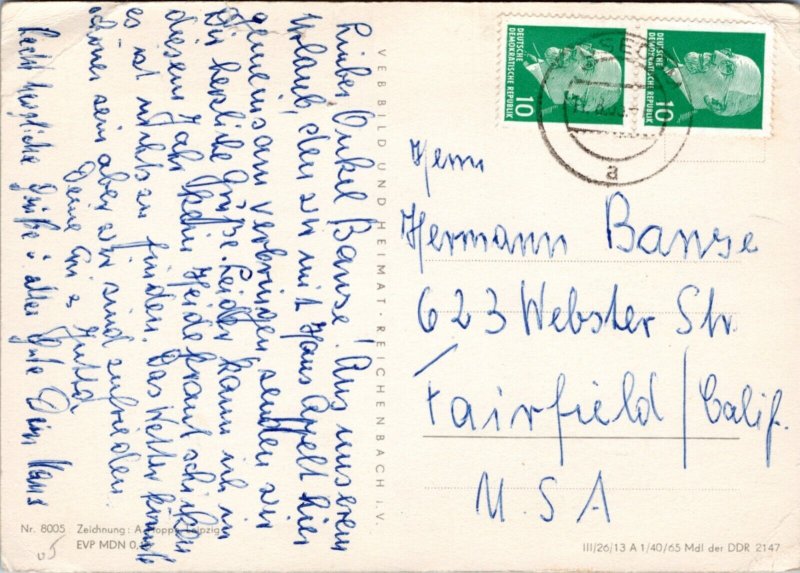 Lieber Onkel Banse! Aus unserem
Urlaub, den wir mit Hans Appelt hier
gemeinsam verbringen senden wir
Dir herzliche Grüße. Leider kann ich in
diesem Jahr kein Heidekraut schicken
es ist nichts zu finden. Das Wetter könnte
schöner sein aber wir sind zufrieden.
Deine Jutta
Recht herzliche Grüße u. alles Gute Dein Hans
VEB BILD UND HEIMAT · REICHENBACH i. V.
DEUTSCHE
DEMOKRATISCHE REPUBLIK
10
DEUTSCHE
DEMOKRATISCHE REPUBLIK
10
a
Herrn
Hermann Banse
623 Webster Str.
Fairfield/Calif.
U.S.A
Nr. 8005 Zeichnung: Leipzig
EVP MDN 0,
05
III/26/13 A 1/40/65 MdI der DDR 2147